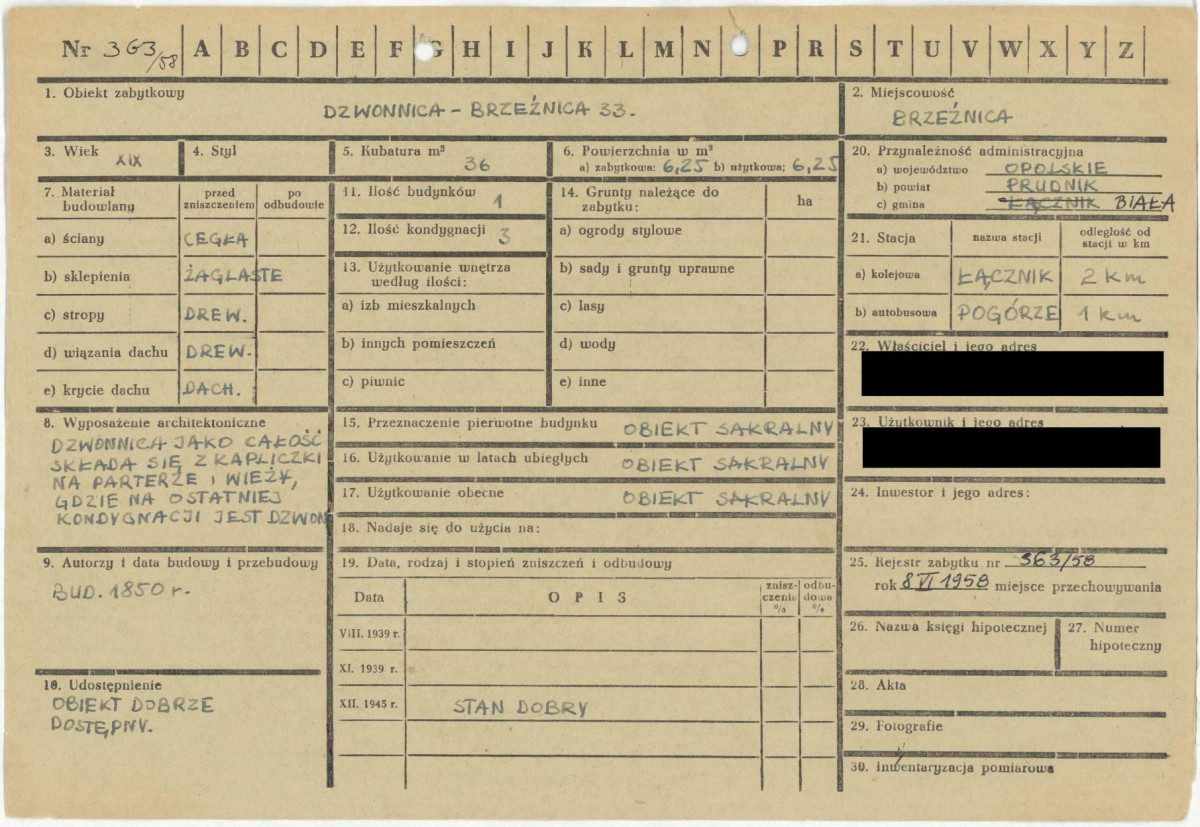 Nr 363/58 A B C D E F G H I J K L M N P R S T U V W X Y Z
1. Obiekt zabytkowy
DZWONNICA – BRZEŹNICA 33.
2. Miejscowość
BRZEŹNICA
3. Wiek XIX
4. Styl
5. Kubatura m³ 36
6. Powierzchnia w m²
a) zabytkowa: 6,25 b) użytkowa; 6,25
7. Materiał budowlany
przed zniszczeniem
po odbudowie
a) ściany CEGŁA
b) sklepienia ŻAGLASTE
c) stropy DREW.
d) wiązania dachu DREW.
e) krycie dachu DACH.
8. Wyposażenie architektoniczne
DZWONNICA JAKO CAŁOŚĆ
SKŁADA SIĘ Z KAPLICZKI
NA PARTERZE I WIEŻY,
GDZIE NA OSTATNIEJ
KONDYGNACJI JEST DZWON
9. Autorzy i data budowy i przebudowy
BUD. 1850 r.
10. Udostępnienie
OBIEKT DOBRZE
DOSTĘPNY.
11. Ilość budynków 1
12. Ilość kondygnacji 3
13. Użytkowanie wnętrza
według ilości:
a) izb mieszkalnych
b) innych pomieszczeń
c) piwnic
14. Grunty należące do
zabytku:
ha
a) ogrody stylowe
b) sady i grunty uprawne
c) lasy
d) wody
e) inne
15. Przeznaczenie pierwotne budynku OBIEKT SAKRALNY
16. Użytkowanie w latach ubiegłych OBIEKT SAKRALNY
17. Użytkowanie obecne OBIEKT SAKRALNY
18. Nadaje się do użycia na:
19. Data, rodzaj i stopień zniszczeń i odbudowy
Data
OPIS
znisz-
czenia
%
odbu-
dowa
%
VIII. 1939 r.
XI. 1939 r.
XII. 1945 r. STAN DOBRY
20. Przynależność administracyjna
a) województwo OPOLSKIE
b) powiat PRUDNIK
c) gmina ŁĄCZNIK BIAŁA
21. Stacja
nazwa stacji
odległość od
stacji w km
a) kolejowa ŁĄCZNIK 2 km
b) autobusowa POGÓRZE 1 km
22. Właściciel i jego adres
23. Użytkownik i jego adres
24. Inwestor i jego adres:
25. Rejestr zabytku nr 363/58
rok 8 VI 1958 miejsce przechowywania
26. Nazwa księgi hipotecznej
27. Numer
hipoteczny
28. Akta
29. Fotografie
30. Inwentaryzacja pomiarowa